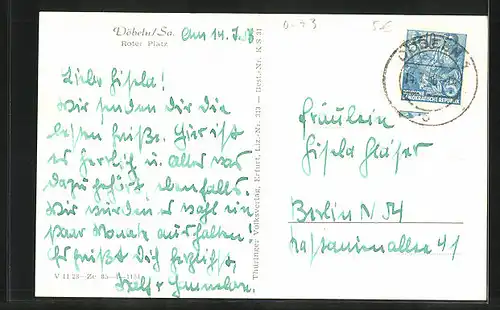 Döbeln/Sa.
Roter Platz
Am 14.
Liebe Gisela!
Wir senden dir die
besten Grüße. Hier ist
es herrlich u. alles was
dazu gehört, ebenfalls.
Wir würden es wohl ein
paar Monate aushalten!
Es grüßt Dich herzlichst,
V 11 28
Thüringer Volksverlag, Erfurt, Liz.-Nr. 313 — Best.-Nr. K S 31
DÖBELN
DEMOKRATISCHE REPUBLIK
Fräulein
Gisela Glaser
Berlin N 54
Kastanienallee 41